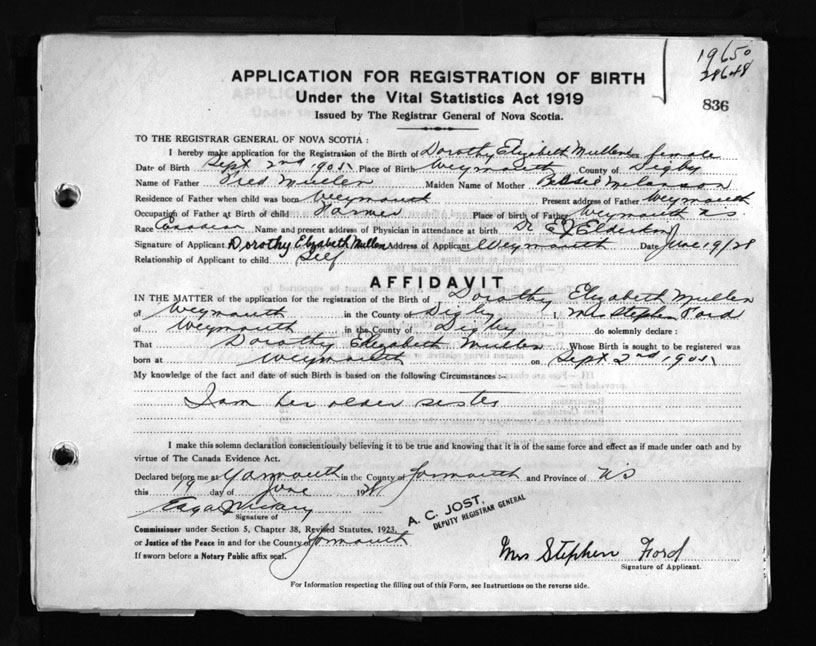 1965
28648
836
APPLICATION FOR REGISTRATION OF BIRTH
Under the Vital Statistics Act 1919
Issued by The Registrar General of Nova Scotia.
TO THE REGISTRAR GENERAL OF NOVA SCOTIA :
I hereby make application for the Registration of the Birth of Dorothy Elizabeth Mullen Sex female
Date of Birth Sept 2nd 1905 Place of Birth Weymouth County of Digby
Name of Father Fred Mullen Maiden Name of Mother
Residence of Father when child was born Weymouth Present address of Father Weymouth
Occupation of Father at Birth of child Farmer Place of birth of Father Weymouth NS
Race Canadian Name and present address of Physician in attendance at birth Dr E J Elderkin
Signature of Applicant Dorothy Elizabeth Mullen Address of Applicant Weymouth Date June 19/28
Relationship of Applicant to child Self
AFFIDAVIT
IN THE MATTER of the application for the registration of the Birth of Dorothy Elizabeth Mullen
of Weymouth in the County of Digby I, Mrs Stephen Ford
of Weymouth in the County of Digby do solemnly declare :
That Dorothy Elizabeth Mullen Whose Birth is sought to be registered was
born at Weymouth on Sept 2nd 1905
My knowledge of the fact and date of such Birth is based on the following Circumstances :-
I am her older sister
I make this solemn declaration conscientiously believing it to be true and knowing that it is of the same force and effect as if made under oath and by
virtue of The Canada Evidence Act.
Declared before me at Yarmouth in the County of Yarmouth and Province of NS
this 19 day of June 1928
A. C. JOST,
DEPUTY REGISTRAR GENERAL
Signature of
Commissioner under Section 5, Chapter 38, Revised Statutes, 1923,
or Justice of the Peace in and for the County of Yarmouth
If sworn before a Notary Public affix seal.
Mrs Stephen Ford
Signature of Applicant.
For Information respecting the filling out of this Form, see Instructions on the reverse side.